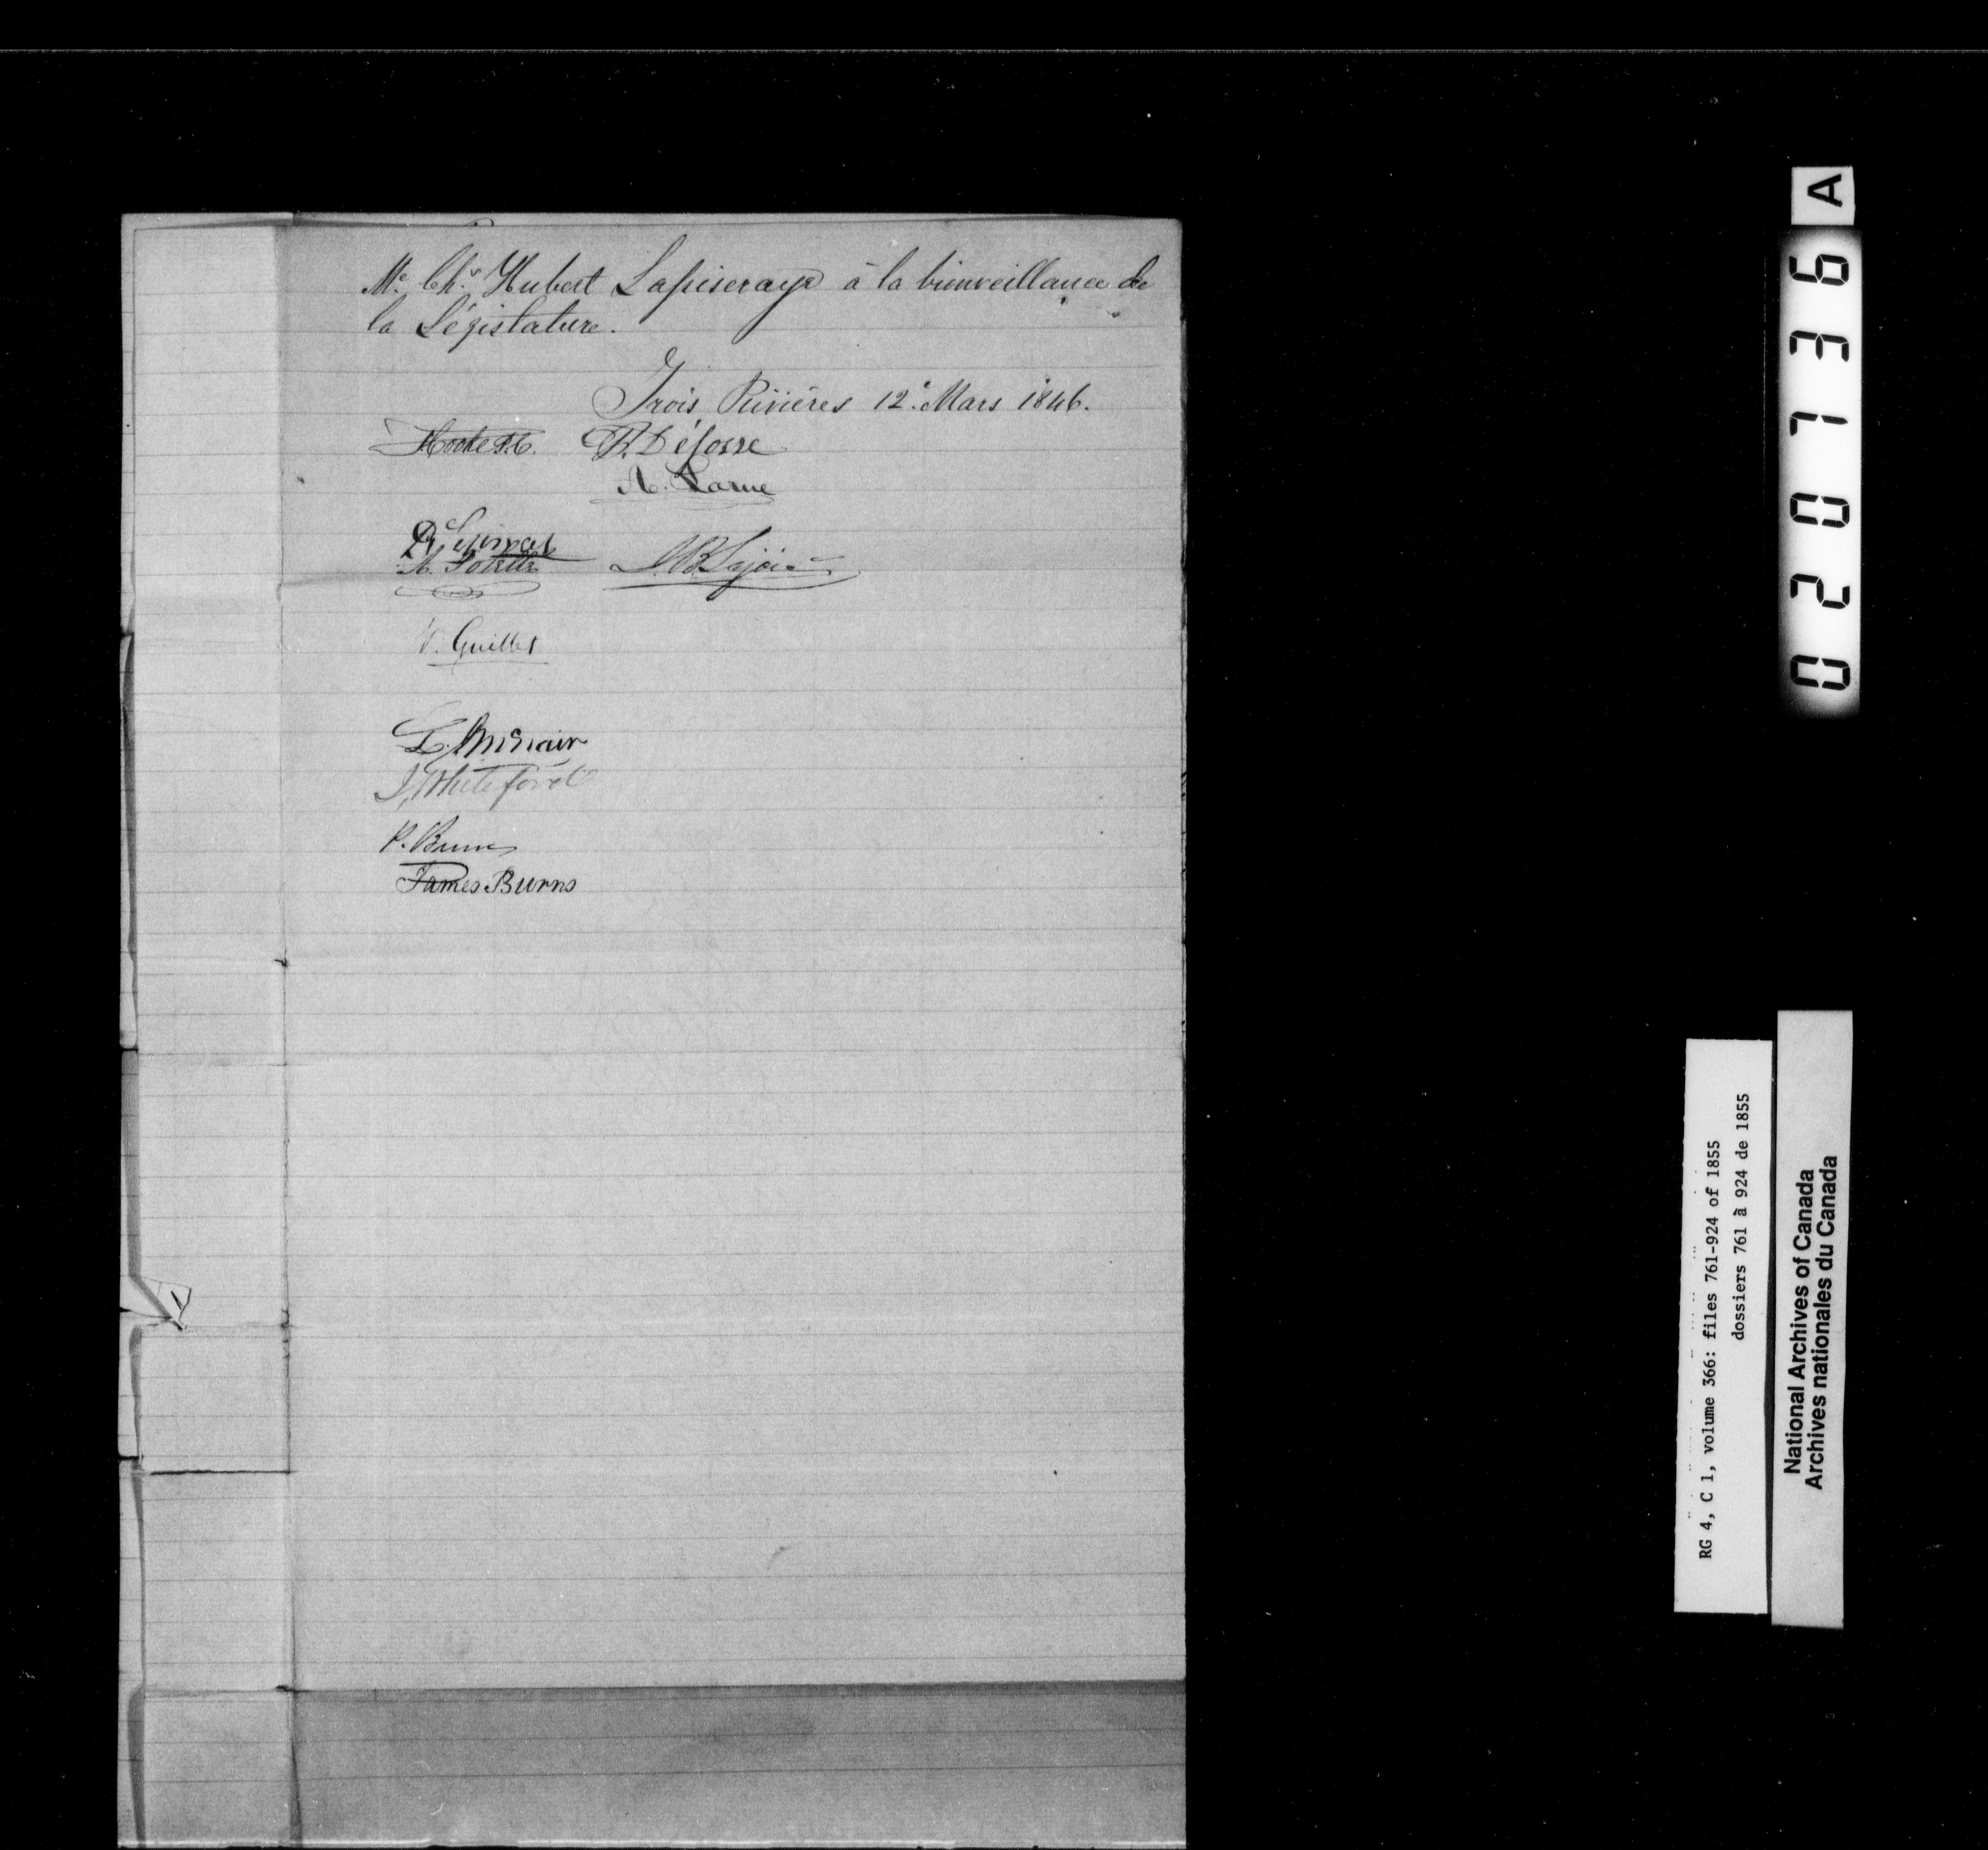 Mr. Chs. Hubert Lapiseraye à la bienveillance de
la Législature.
Trois Rivières 12e. Mars 1846.
P. Défosse
A. Larue
J.B. Lajoie
Guillet
L.
J. Whiteford
P. Burns
James Burns
020736
A
RG 4, C 1, volume 366: files 761-924 of 1855
dossiers 761 à 924 de 1855
National Archives of Canada
Archives nationales du Canada